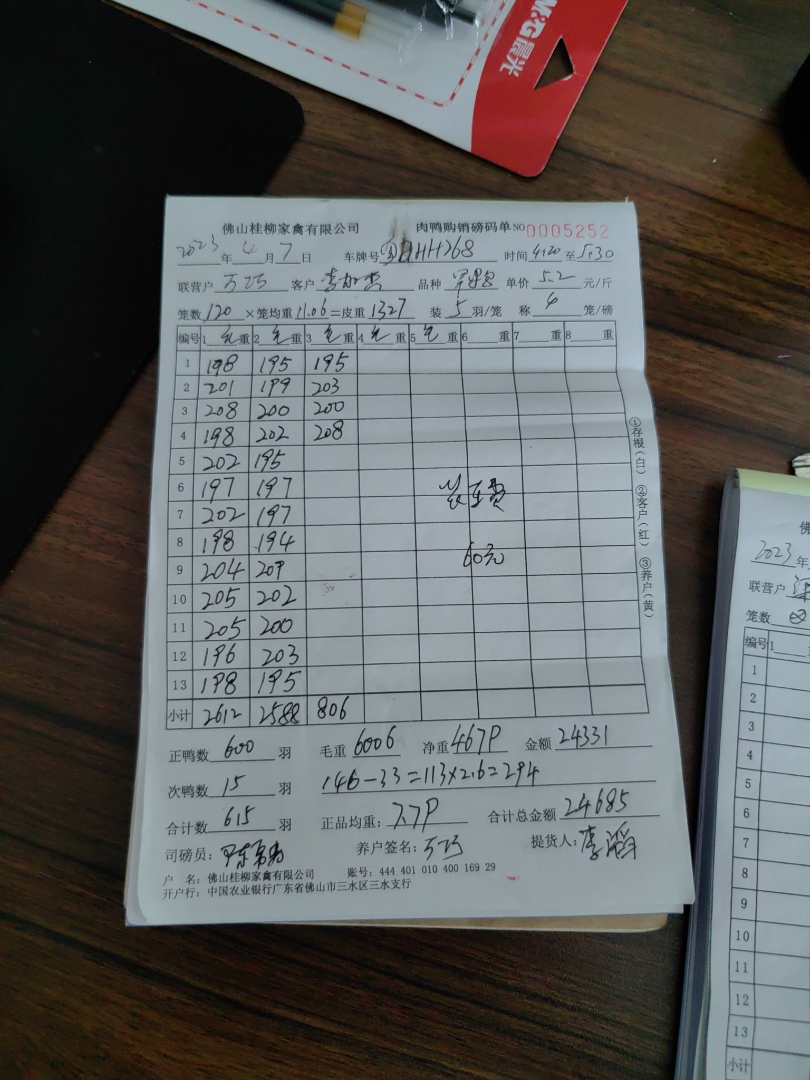 M&G晨光
佛山桂柳家禽有限公司 肉鸭购销磅码单 NO 0005252
2023年4月7日 车牌号 HH768 时间 4:20 至 5:30
联营户 万巧 客户 品种 单价 5.2 元/斤
笼数 120 ×笼均重 11.06 =皮重 1327 装 5 羽/笼 称 4 笼/磅
编号 1 毛重 2 毛重 3 毛重 4 毛重 5 毛 6 重 7 重 8 重
1 198 195 195
2 201 199 203
3 208 200 200
4 198 202 208
5 202 195
6 197 197
7 202 197
8 198 194
9 204 209
10 205 202
11 205 200
12 196 203
13 198 195
装车费
60元
小计 2612 2588 806
正鸭数 600 羽 毛重 6006 净重 4679 金额 24331
次鸭数 15 羽 146-33=113×2.6=294
合计数 615 羽 正品均重: 7.79 合计总金额 24685
司磅员: 养户签名: 万巧 提货人: 李滔
户 名: 佛山桂柳家禽有限公司 账号: 444 401 010 400 169 29
开户行: 中国农业银行广东省佛山市三水区三水支行
①存根(白) ②客户(红) ③养户(黄)
佛
2023年
联营户
笼数
编号 1
1
2
3
4
5
6
7
8
9
10
11
12
13
小计